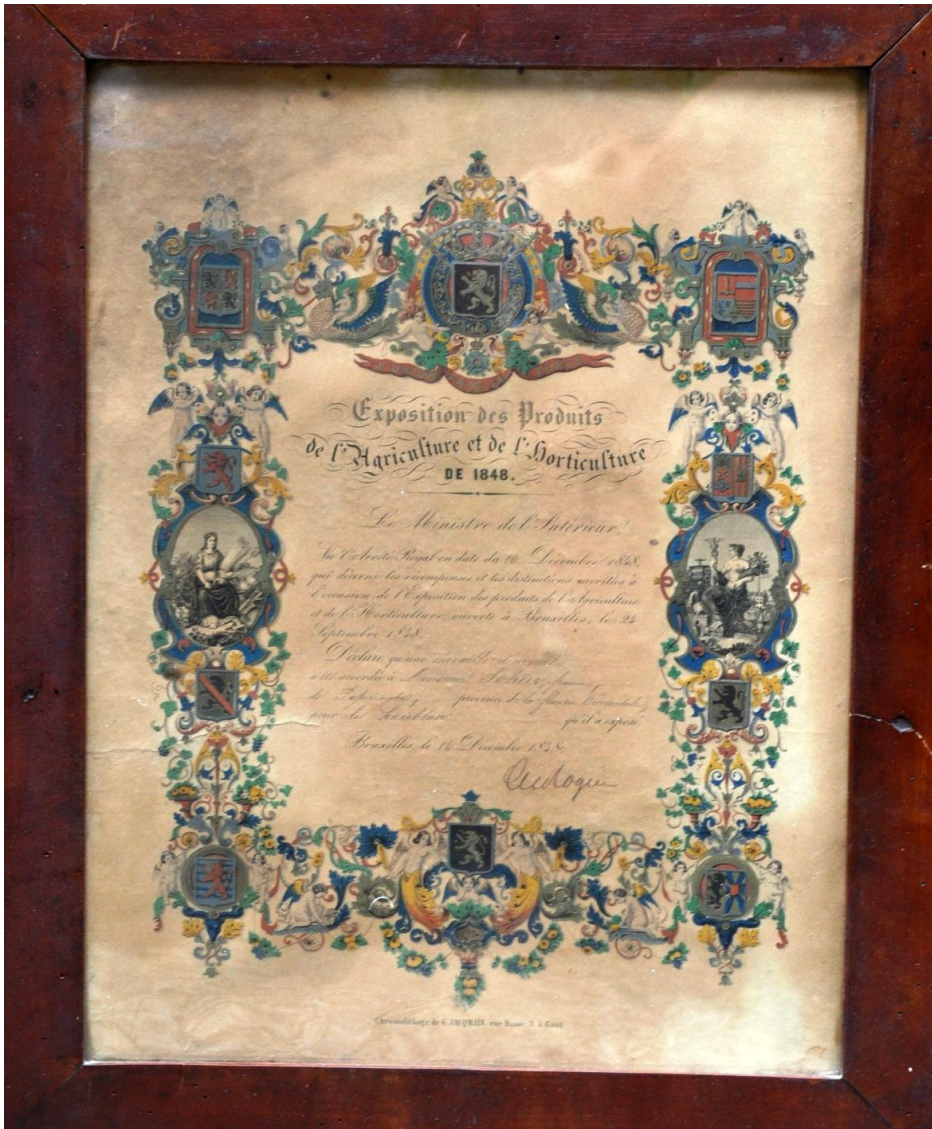 Exposition des Produits
de l'Agriculture et de l'Horticulture
DE 1848.
Le Ministre de l'Intérieur,
Vu l'Arrêté Royal en date du 16 Décembre 1848,
qui décerne les récompenses et les distinctions méritées à
l'occasion de l'Exposition des produits de l'Agriculture
et de l'Horticulture, ouverte à Bruxelles, le 24
Septembre 1848.
Déclare qu'une
a été accordée à Monsieur
de province de la Flandre Occidentale,
pour le Houblon qu'il a exposé.
Bruxelles, le 16 Décembre 1848.
Chromolithogr. de G. JACQMAIN, rue Basse, à Gand